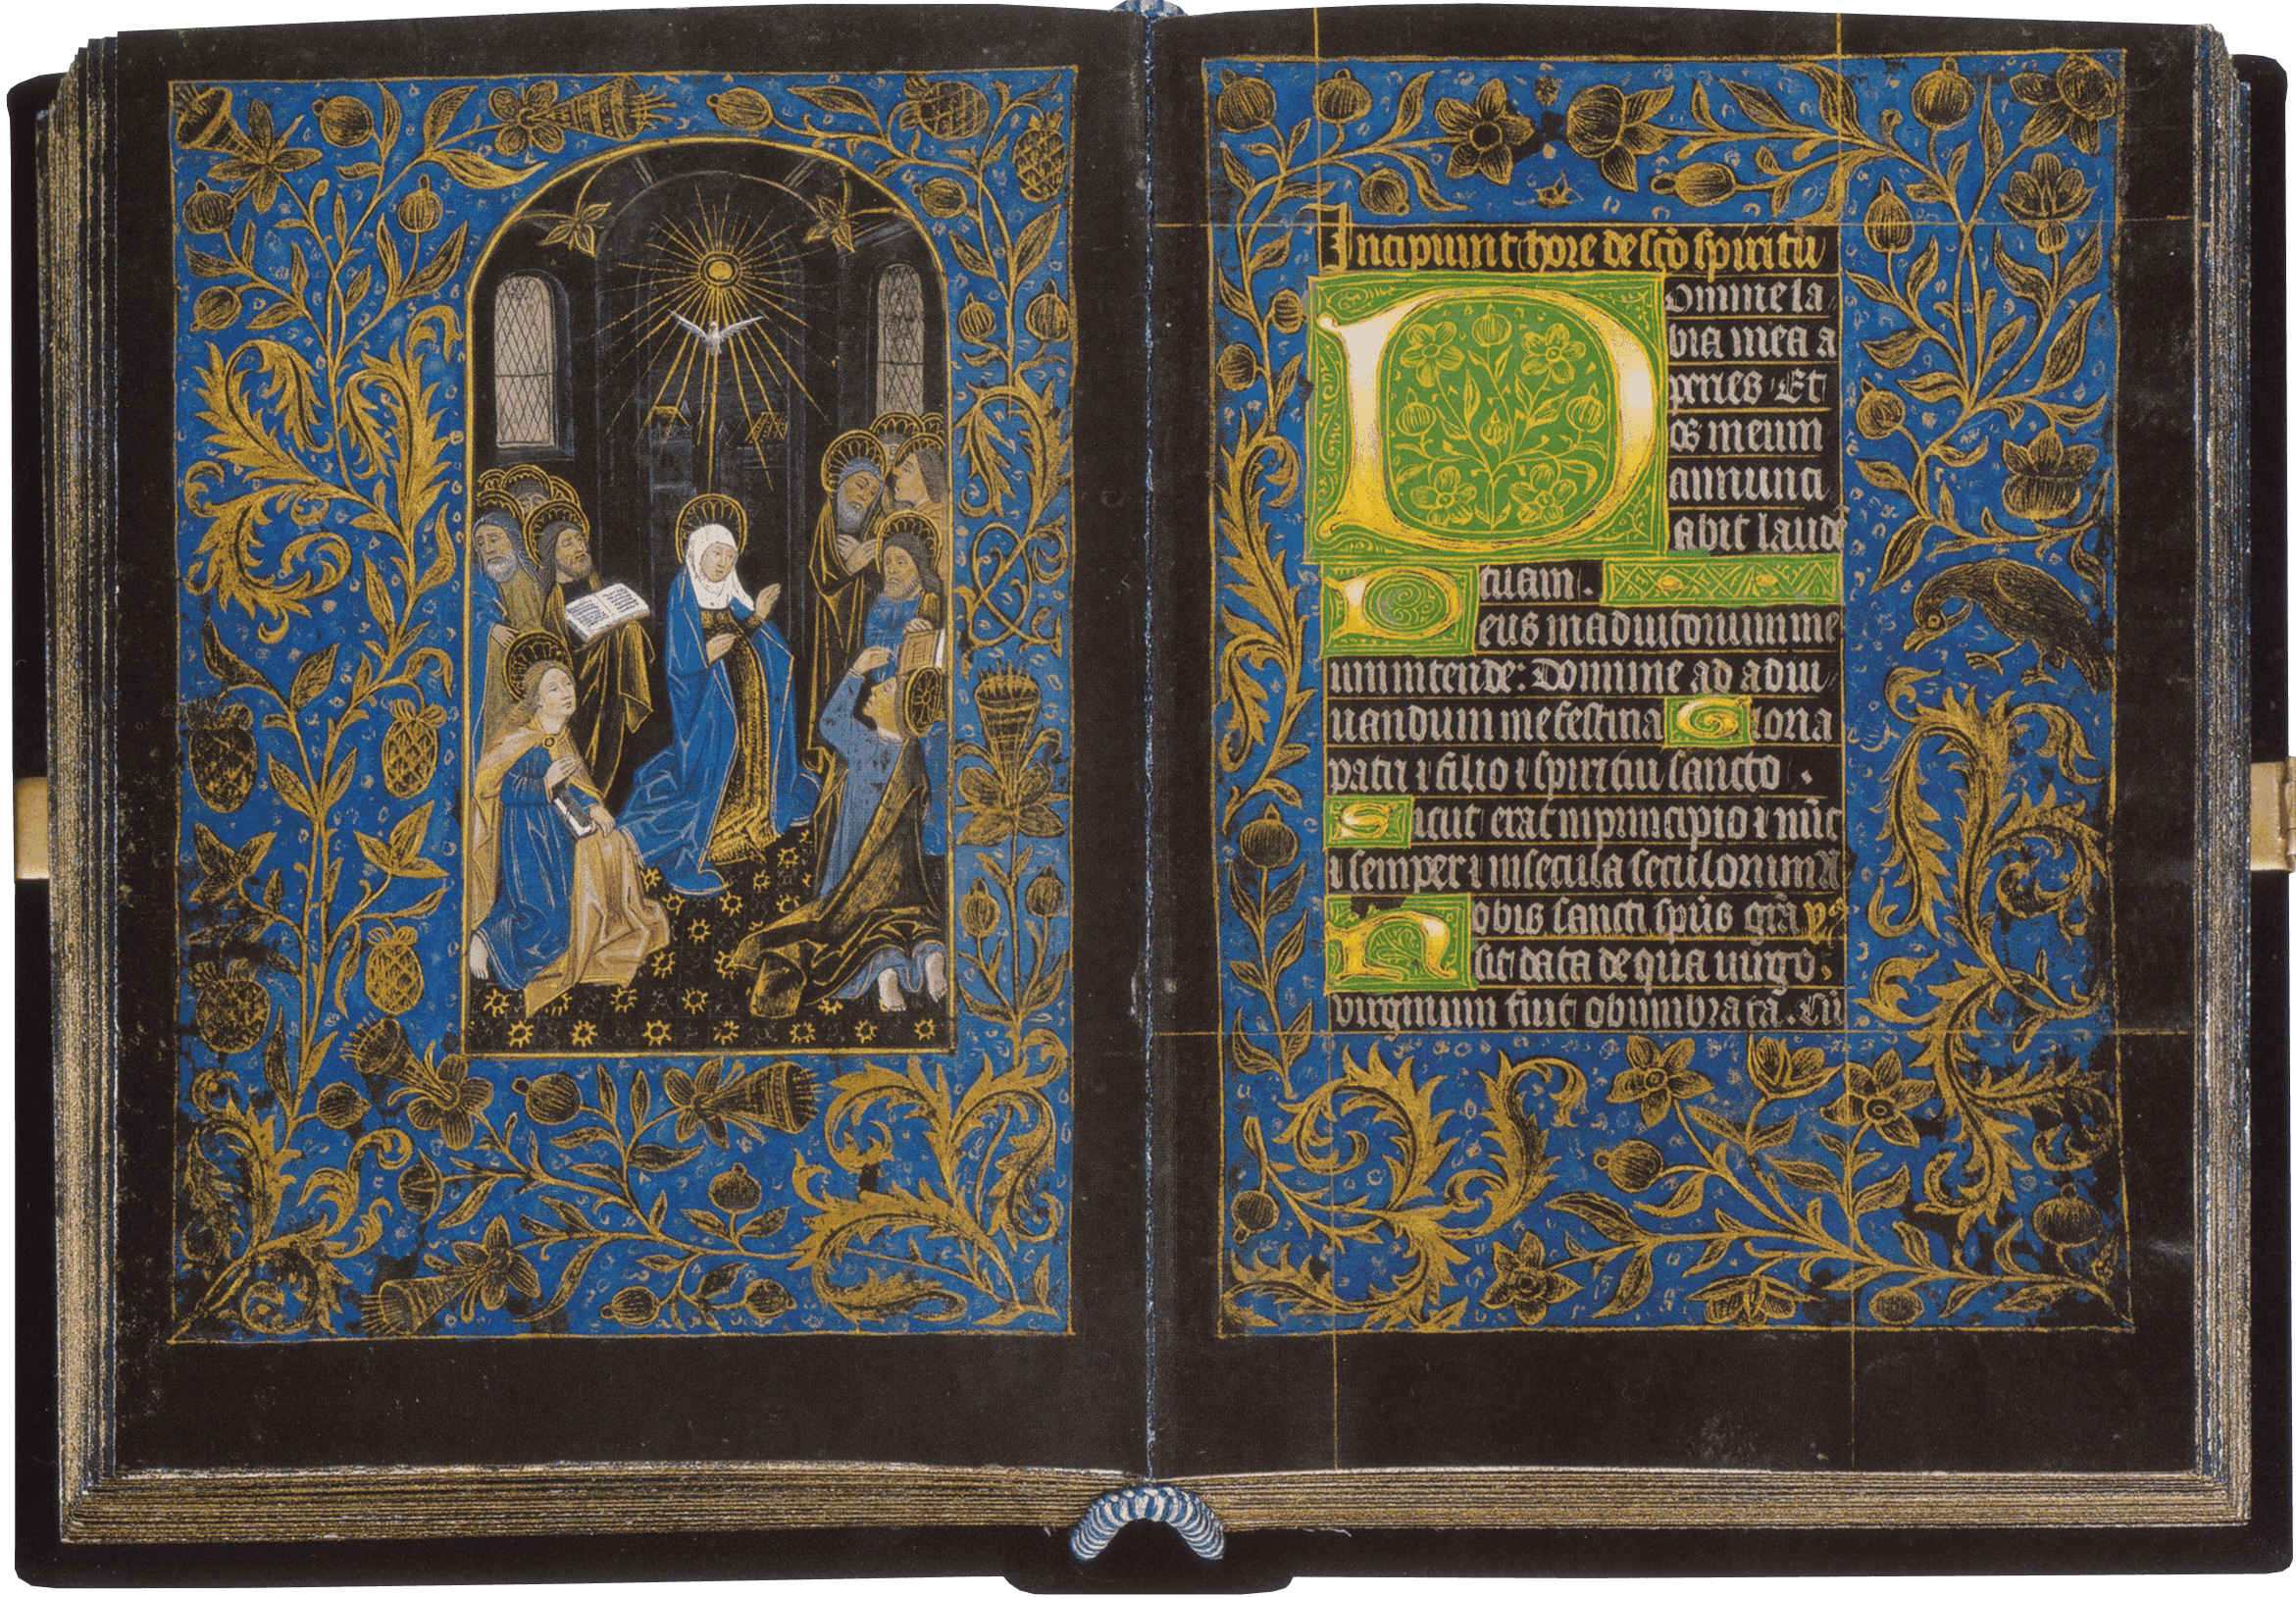 Incipiunt hore de sco spiritu
Domine la
bia mea a
peries Et
os meum
annunci
abit laudē
tuam.
Deus in adiutorium me
um intende: Domine ad adiu
uandum me festina Gloria
patri ⁊ filio ⁊ spiritui sancto.
Sicut erat in principio ⁊ nūc
⁊ semper ⁊ in secula seculorum A
Nobis sancti spūs grā ỹ
sit data de qua uirgo
virginum fuit obumbrata. Cū